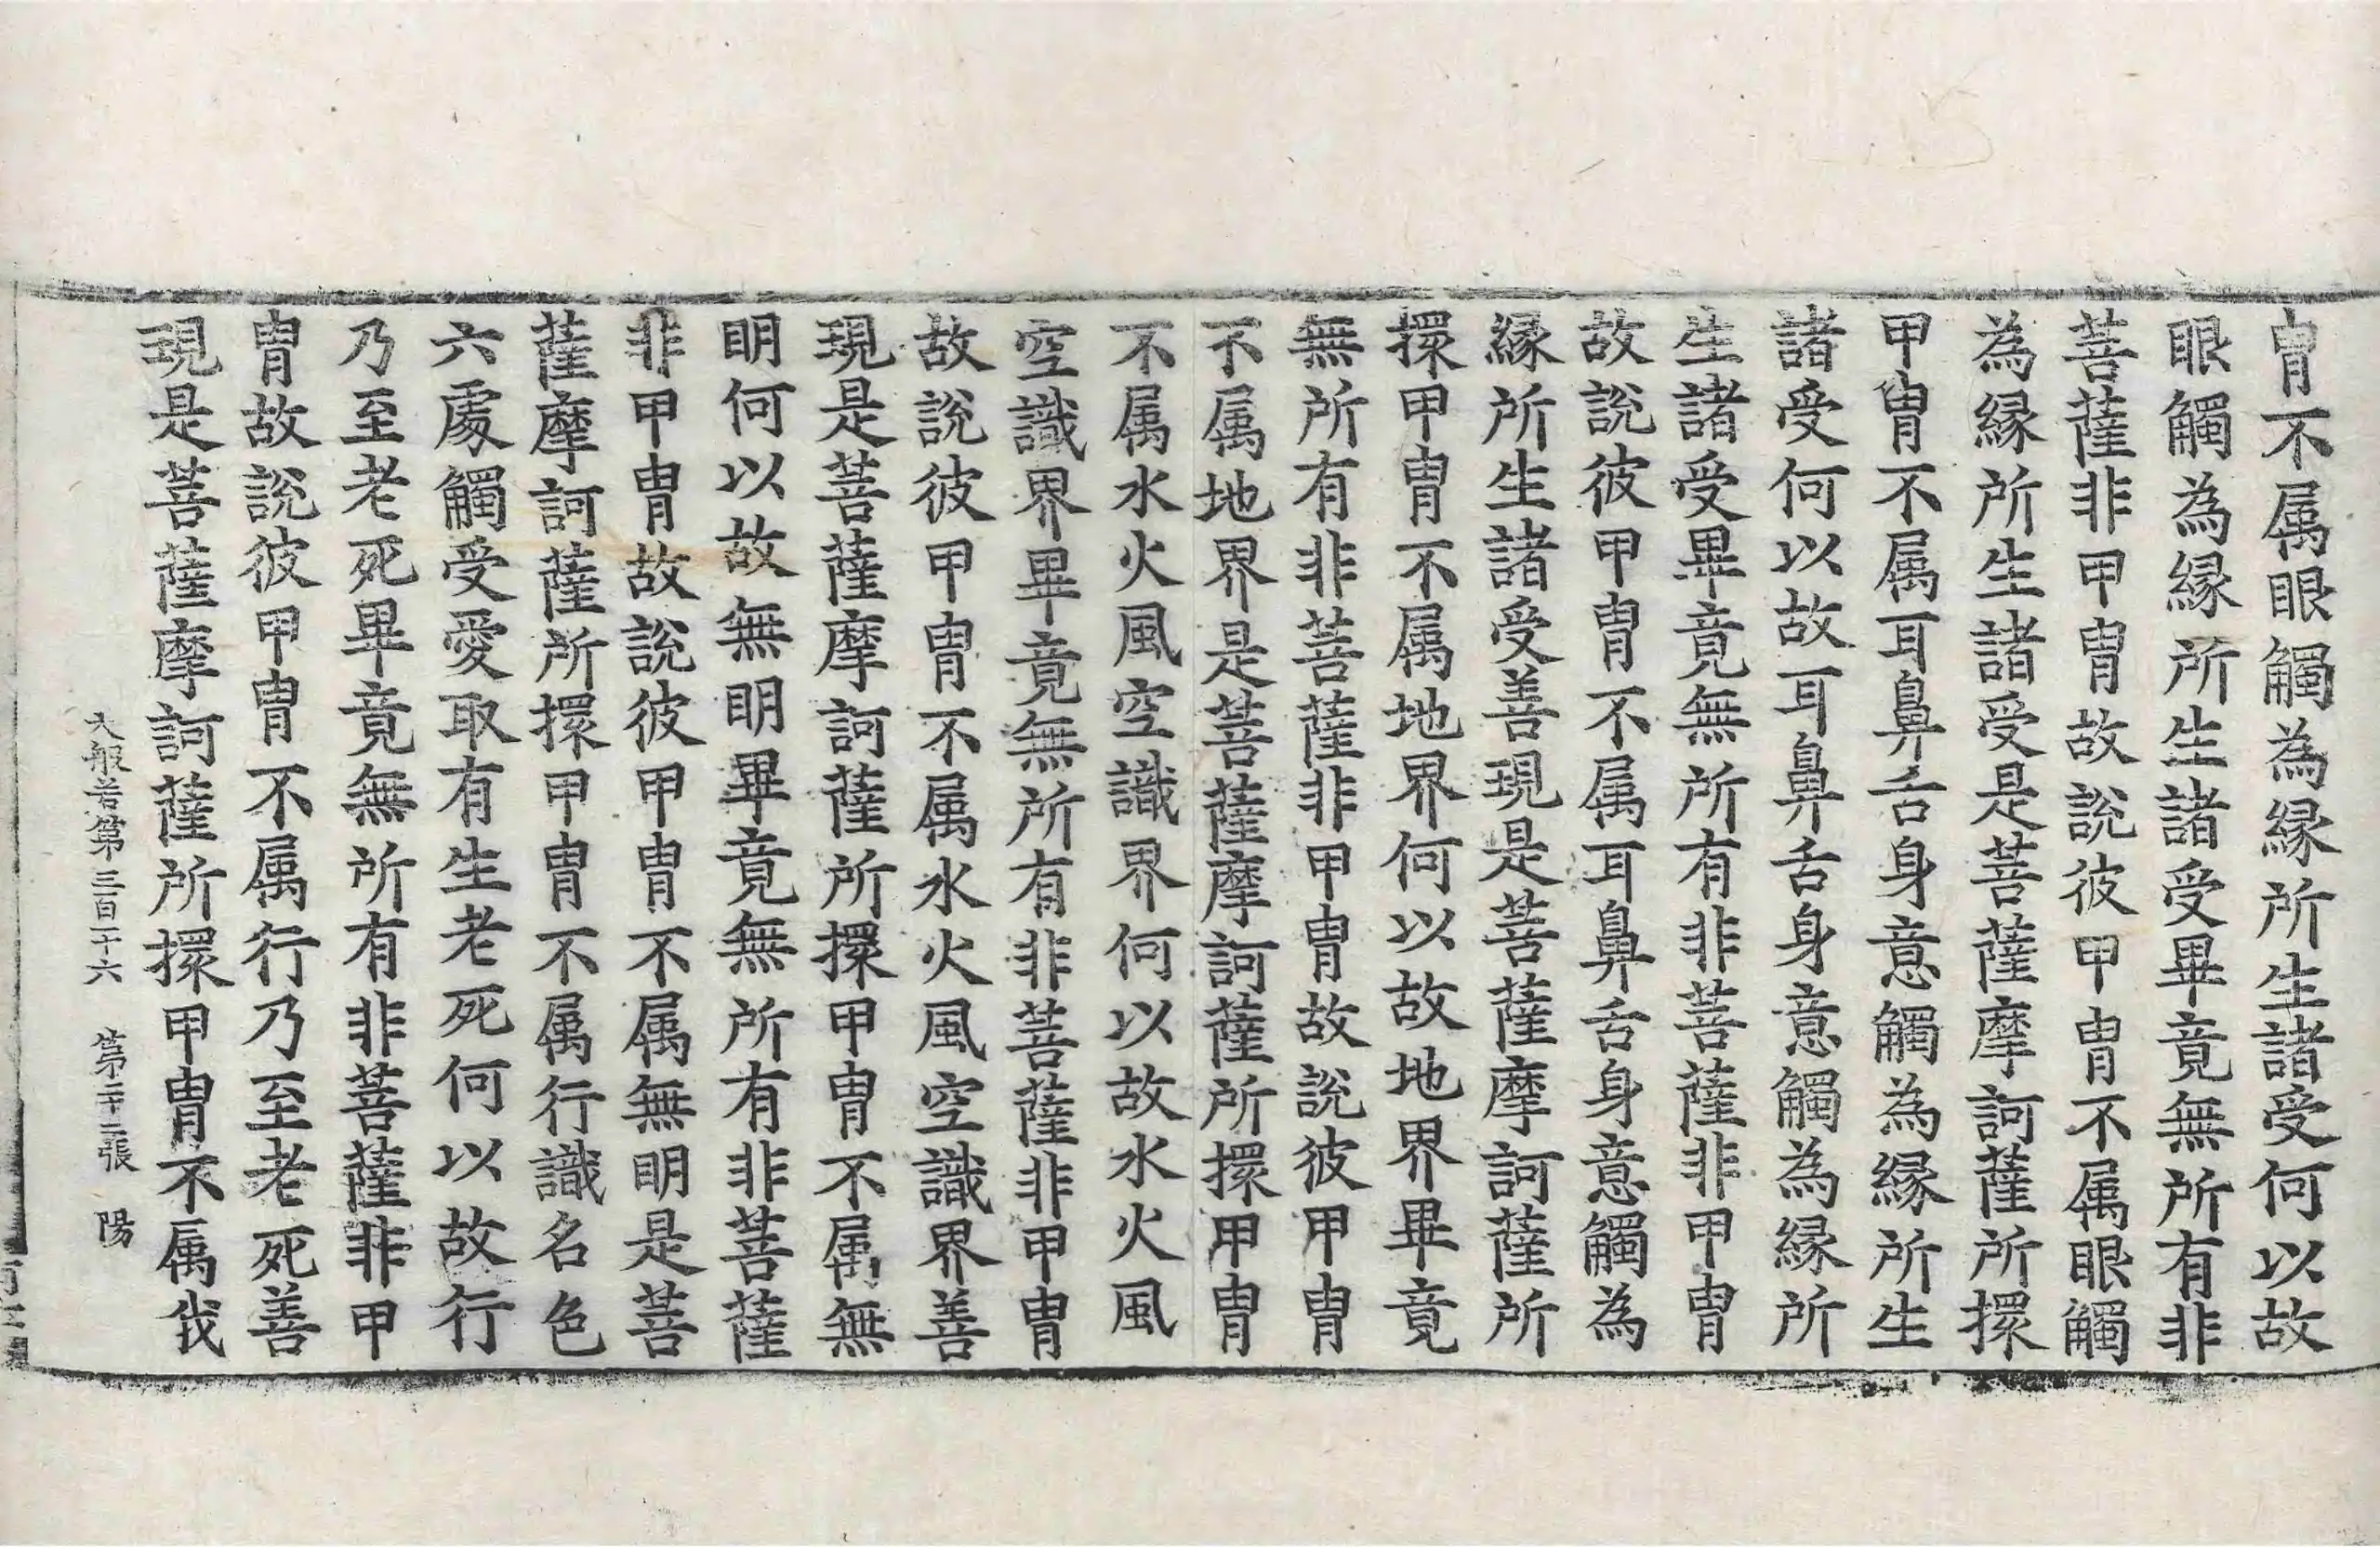 胄不属眼觸為緣所生諸受何以故
眼觸為緣所生諸受畢竟無所有非
菩薩非甲胄故說彼甲胄不属眼觸
為緣所生諸受是菩薩摩訶薩所擐
甲胄不属耳鼻舌身意觸為緣所生
諸受何以故耳鼻舌身意觸為緣所
生諸受畢竟無所有非菩薩非甲胄
故說彼甲胄不属耳鼻舌身意觸為
緣所生諸受善現是菩薩摩訶薩所
擐甲胄不属地界何以故地界畢竟
無所有非菩薩非甲胄故說彼甲胄
不属地界是菩薩摩訶薩所擐甲胄
不属水火風空識界何以故水火風
空識界畢竟無所有非菩薩非甲胄
故說彼甲胄不属水火風空識界善
現是菩薩摩訶薩所擐甲胄不属無
明何以故無明畢竟無所有非菩薩
非甲胄故說彼甲胄不属無明是菩
薩摩訶薩所擐甲胄不属行識名色
六處觸受愛取有生老死何以故行
乃至老死畢竟無所有非菩薩非甲
胄故說彼甲胄不属行乃至老死善
現是菩薩摩訶薩所擐甲胄不属我
大般若第三百二十六 第二十二張 陽